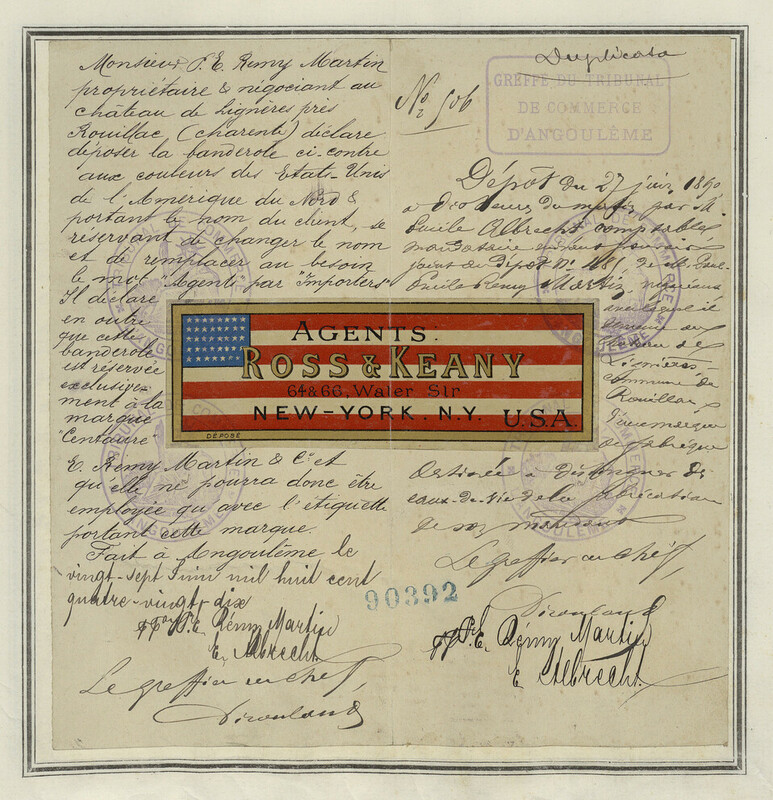 Monsieur P. E. Rémy Martin
propriétaire & négociant au
château de Lignères près
Rouillac (charente) déclare
déposer la banderole ci-contre
aux couleurs des Etats-Unis
de l'Amérique du Nord &
portant le nom du client, se
réservant de changer le nom
et de remplacer au besoin
le mot "Agents" par "Importers"
Il déclare
en outre
que cette
banderole
est réservée
exclusive-
ment à la
marque
"Centaure"
E. Rémy Martin & Cie et
qu'elle ne pourra donc être
employée qu'avec l'étiquette
portant cette marque.
Fait à Angoulême le
vingt-sept Juin mil huit cent
quatre-vingt-dix
P.E. Rémy Martin
E. Albrecht
Le greffier en chef,
Duplicata
GREFFE DU TRIBUNAL
DE COMMERCE
D'ANGOULÊME
No 506
Dépôt du 27 juin 1890
a dix heures du matin par M.
Emile Albrecht comptable
mandataire
joint au Dépôt No 485 de M. Paul-
Emile Rémy Martin, négociant
demeurant au
château de
Lignères
commune de
Rouillac
d'une marque
de fabrique
destinée à distinguer des
eaux-de-vie de la fabrication
de son mandant
Le greffier en chef,
P.E. Rémy Martin
E. Albrecht
AGENTS.
ROSS & KEANY
64 & 66, Water Str
NEW-YORK. N.Y. U.S.A.
DÉPOSÉ
90392